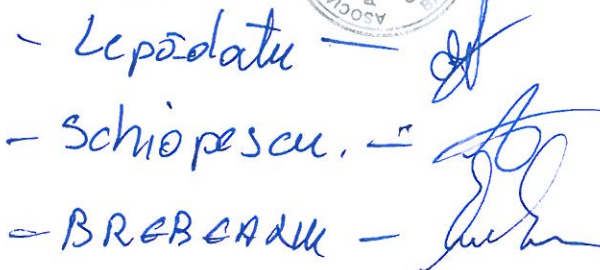 ASOCI
- Lepădatu -
- Schiopescu. -
- BREBEANU -